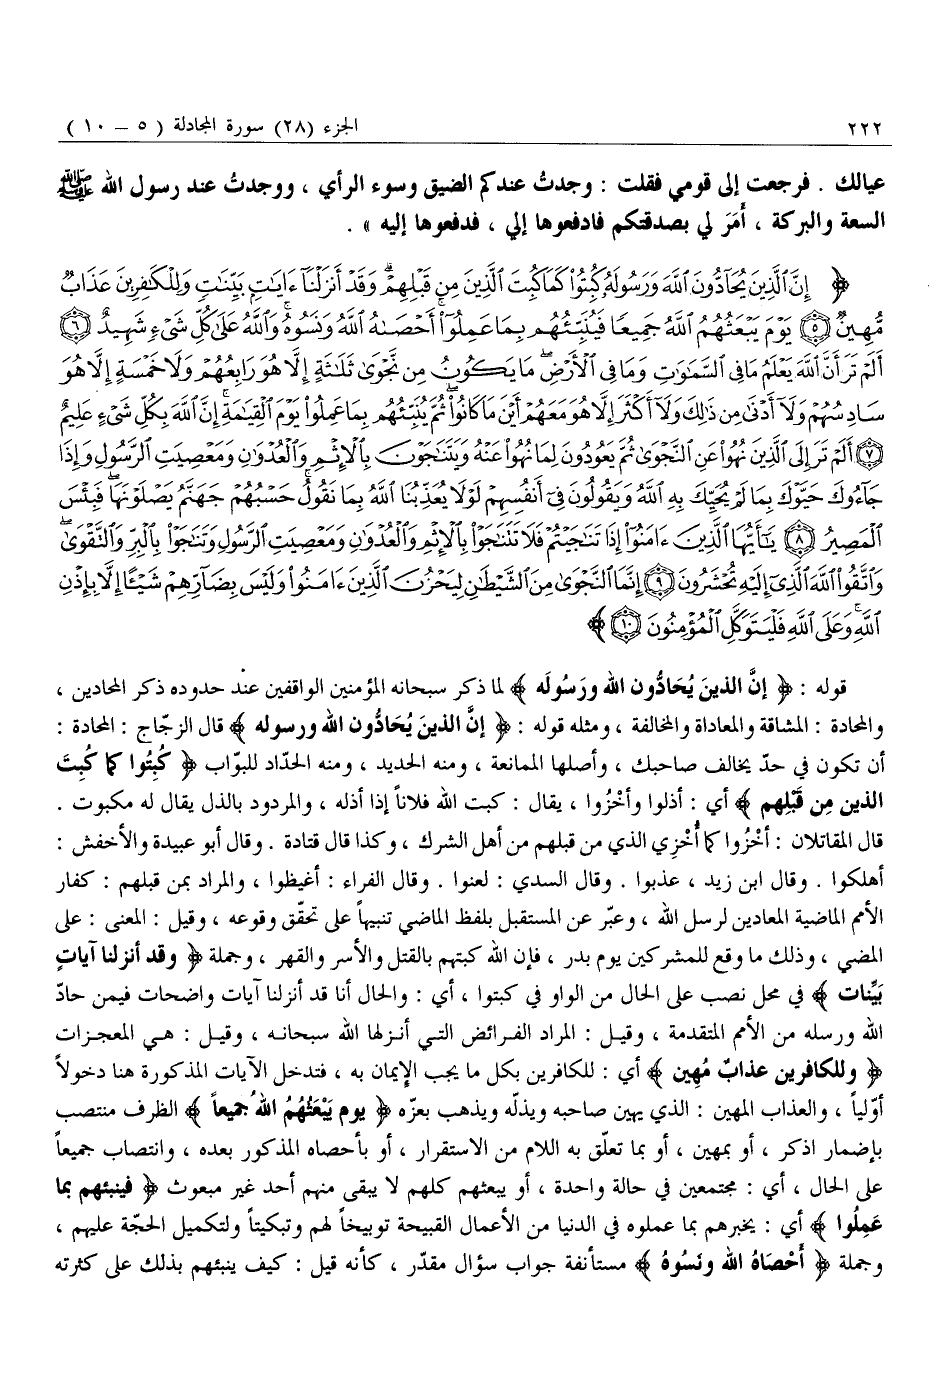 ٢٢٢ الجزء (٢٨) سورة المجادلة ( ٥ – ١٠ )
عيالك . فرجعت إلى قومي فقلت : وجدتُ عندكم الضيق وسوء الرأي ، ووجدتُ عند رسول الله ﷺ
السعة والبركة ، أَمَرَ لي بصدقتكم فادفعوها إلي ، فدفعوها إليه » .
﴿ إِنَّ ٱلَّذِينَ يُحَآدُّونَ ٱللَّهَ وَرَسُولَهُۥ كُبِتُوا۟ كَمَا كُبِتَ ٱلَّذِينَ مِن قَبْلِهِمْ ۚ وَقَدْ أَنزَلْنَآ ءَايَٰتٍۭ بَيِّنَٰتٍ ۚ وَلِلْكَٰفِرِينَ عَذَابٌ
مُّهِينٌ ٥ يَوْمَ يَبْعَثُهُمُ ٱللَّهُ جَمِيعًا فَيُنَبِّئُهُم بِمَا عَمِلُوٓا۟ ۚ أَحْصَىٰهُ ٱللَّهُ وَنَسُوهُ ۚ وَٱللَّهُ عَلَىٰ كُلِّ شَىْءٍ شَهِيدٌ ٦
أَلَمْ تَرَ أَنَّ ٱللَّهَ يَعْلَمُ مَا فِى ٱلسَّمَٰوَٰتِ وَمَا فِى ٱلْأَرْضِ ۖ مَا يَكُونُ مِن نَّجْوَىٰ ثَلَٰثَةٍ إِلَّا هُوَ رَابِعُهُمْ وَلَا خَمْسَةٍ إِلَّا هُوَ
سَادِسُهُمْ وَلَآ أَدْنَىٰ مِن ذَٰلِكَ وَلَآ أَكْثَرَ إِلَّا هُوَ مَعَهُمْ أَيْنَ مَا كَانُوا۟ ۖ ثُمَّ يُنَبِّئُهُم بِمَا عَمِلُوا۟ يَوْمَ ٱلْقِيَٰمَةِ ۚ إِنَّ ٱللَّهَ بِكُلِّ شَىْءٍ عَلِيمٌ
٧ أَلَمْ تَرَ إِلَى ٱلَّذِينَ نُهُوا۟ عَنِ ٱلنَّجْوَىٰ ثُمَّ يَعُودُونَ لِمَا نُهُوا۟ عَنْهُ وَيَتَنَٰجَوْنَ بِٱلْإِثْمِ وَٱلْعُدْوَٰنِ وَمَعْصِيَتِ ٱلرَّسُولِ وَإِذَا
جَآءُوكَ حَيَّوْكَ بِمَا لَمْ يُحَيِّكَ بِهِ ٱللَّهُ وَيَقُولُونَ فِىٓ أَنفُسِهِمْ لَوْلَا يُعَذِّبُنَا ٱللَّهُ بِمَا نَقُولُ ۚ حَسْبُهُمْ جَهَنَّمُ يَصْلَوْنَهَا ۖ فَبِئْسَ
ٱلْمَصِيرُ ٨ يَٰٓأَيُّهَا ٱلَّذِينَ ءَامَنُوٓا۟ إِذَا تَنَٰجَيْتُمْ فَلَا تَتَنَٰجَوْا۟ بِٱلْإِثْمِ وَٱلْعُدْوَٰنِ وَمَعْصِيَتِ ٱلرَّسُولِ وَتَنَٰجَوْا۟ بِٱلْبِرِّ وَٱلتَّقْوَىٰ ۖ
وَٱتَّقُوا۟ ٱللَّهَ ٱلَّذِىٓ إِلَيْهِ تُحْشَرُونَ ٩ إِنَّمَا ٱلنَّجْوَىٰ مِنَ ٱلشَّيْطَٰنِ لِيَحْزُنَ ٱلَّذِينَ ءَامَنُوا۟ وَلَيْسَ بِضَآرِّهِمْ شَيْـًٔا إِلَّا بِإِذْنِ
ٱللَّهِ ۚ وَعَلَى ٱللَّهِ فَلْيَتَوَكَّلِ ٱلْمُؤْمِنُونَ ١٠ ﴾
قوله : ﴿ إنَّ الذينَ يُحَادُّون الله ورَسُولَه ﴾ لما ذكر سبحانه المؤمنين الواقفين عند حدوده ذكر المحادين ،
والمحادة : المشاقة والمعاداة والمخالفة ، ومثله قوله : ﴿ إنَّ الذينَ يُحَادُّون الله ورسوله ﴾ قال الزجّاج : المحادة :
أن تكون في حدّ يخالف صاحبك ، وأصلها الممانعة ، ومنه الحديد ، ومنه الحدّاد للبوّاب ﴿ كُبِتُوا كما كُبِتَ
الذين مِن قَبْلِهم ﴾ أي : أذلوا وأخْزُوا ، يقال : كبت الله فلاناً إذا أذله ، والمردود بالذل يقال له مكبوت .
قال المقاتلان : أخْزُوا كما أُخْزِي الذي من قبلهم من أهل الشرك ، وكذا قال قتادة . وقال أبو عبيدة والأخفش :
أهلكوا . وقال ابن زيد ، عذبوا . وقال السدي : لعنوا . وقال الفراء : أغيظوا ، والمراد بمن قبلهم : كفار
الأمم الماضية المعادين لرسل الله ، وعبّر عن المستقبل بلفظ الماضي تنبيهاً على تحقّق وقوعه ، وقيل : المعنى : على
المضي ، وذلك ما وقع للمشركين يوم بدر ، فإن الله كبتهم بالقتل والأسر والقهر ، وجملة ﴿ وقد أنزلنا آياتٍ
بَيِّنات ﴾ في محل نصب على الحال من الواو في كبتوا ، أي : والحال أنا قد أنزلنا آيات واضحات فيمن حادّ
الله ورسله من الأمم المتقدمة ، وقيل : المراد الفرائض التي أنزلها الله سبحانه ، وقيل : هي المعجزات
﴿ وللكافرين عذابٌ مُهِين ﴾ أي : للكافرين بكل ما يجب الإيمان به ، فتدخل الآيات المذكورة هنا دخولاً
أوّلياً ، والعذاب المهين : الذي يهين صاحبه ويذلّه ويذهب بعزّه ﴿ يوم يَبْعَثُهُمُ اللهُ جَميعاً ﴾ الظرف منتصب
بإضمار اذكر ، أو بمهين ، أو بما تعلّق به اللام من الاستقرار ، أو بأحصاه المذكور بعده ، وانتصاب جميعاً
على الحال ، أي : مجتمعين في حالة واحدة ، أو يبعثهم كلهم لا يبقى منهم أحد غير مبعوث ﴿ فينبئهم بما
عَمِلُوا ﴾ أي : يخبرهم بما عملوه في الدنيا من الأعمال القبيحة توبيخاً لهم وتبكيتاً ولتكميل الحجّة عليهم ،
وجملة ﴿ أَحْصَاهُ الله ونَسُوهُ ﴾ مستأنفة جواب سؤال مقدّر ، كأنه قيل : كيف ينبئهم بذلك على كثرته